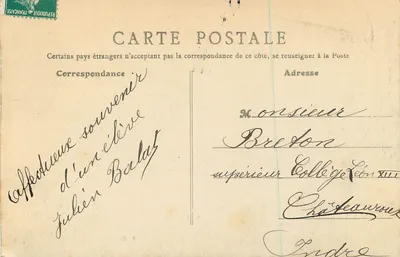 CARTE POSTALE
Certains pays étrangers n'acceptant pas la correspondance de ce côté, se renseigner à la Poste
Correspondance
Adresse
Affectueux souvenir
d'un élève
Julien Balat
Monsieur
Breton
supérieur Collège Léon XIII
Châteauroux
Indre